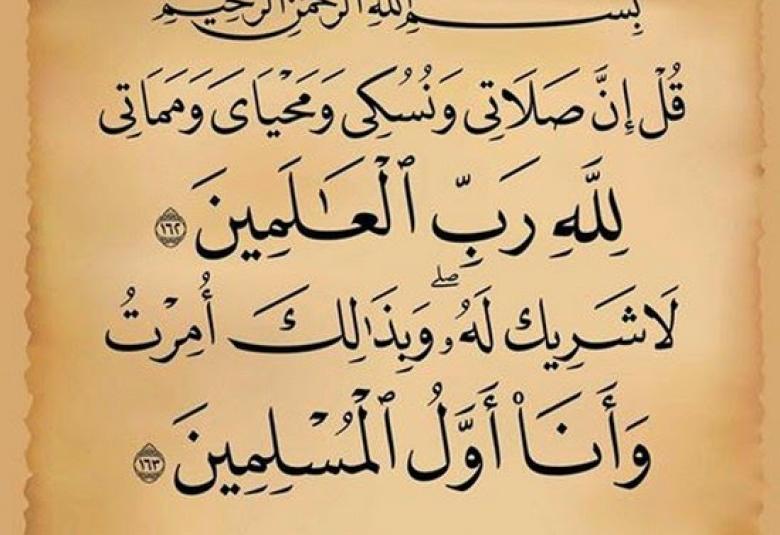 بِسْمِ اللَّهِ الرَّحْمَنِ الرَّحِيمِ
قُلْ إِنَّ صَلَاتِى وَنُسُكِى وَمَحْيَاىَ وَمَمَاتِى
لِلَّهِ رَبِّ ٱلْعَـٰلَمِينَ ١٦٢
لَا شَرِيكَ لَهُۥ ۖ وَبِذَٰلِكَ أُمِرْتُ
وَأَنَا۠ أَوَّلُ ٱلْمُسْلِمِينَ ١٦٣